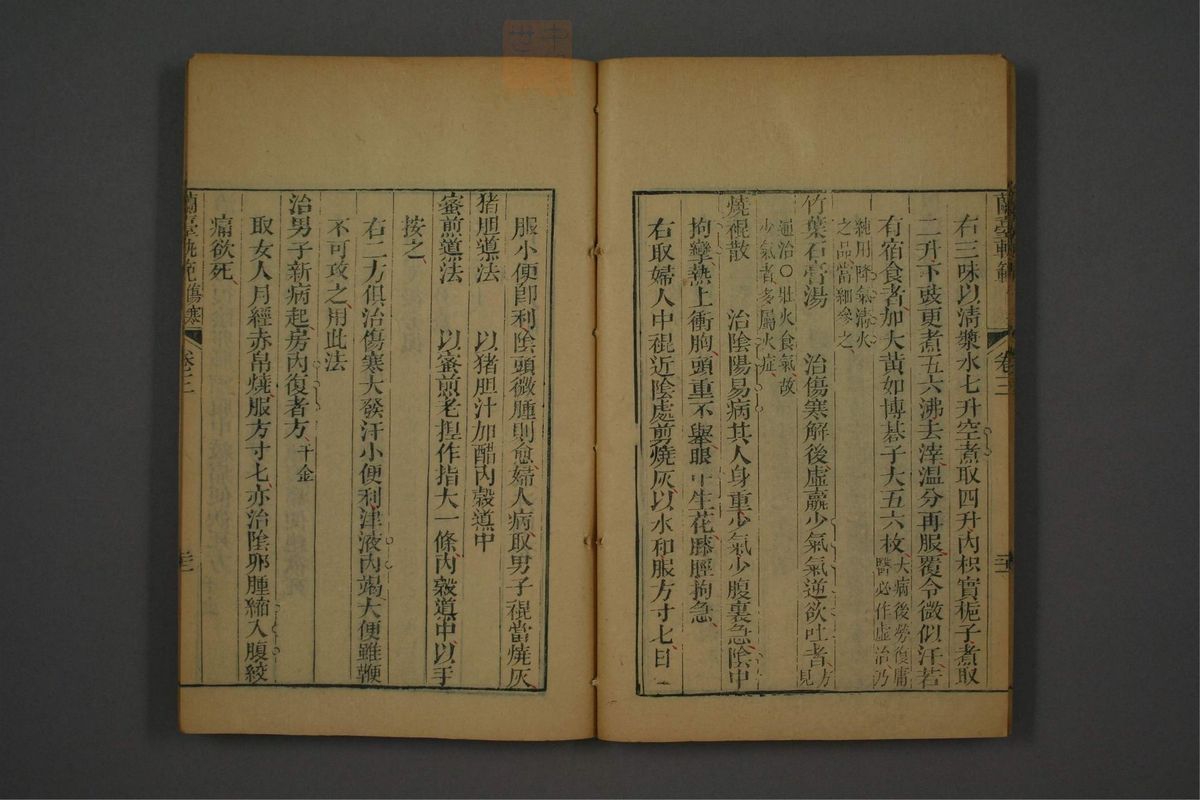 右三味以清漿水七升空煮取四升內枳實梔子煮取
二升下豉更煮五六沸去滓溫分再服覆令微似汗若
有宿食者加大黃如博碁子大五六枚大病後勞復庸
醫必作虛治乃
純用降氣清火
之品當細參之
竹葉石膏湯　治傷寒解後虛羸少氣氣逆欲吐者方見
通治〇壯火食氣故
少氣者多屬火症
燒裩散　治陰陽易病其人身重少氣少腹裏急陰中
拘攣熱上衝胸頭重不舉眼中生花膝脛拘急
右取婦人中裩近陰處剪燒灰以水和服方寸匕日
蘭臺軌範
卷三
服小便卽利陰頭微腫則愈婦人病取男子裩當燒灰
猪胆導法　以猪胆汁加醋內穀道中
蜜煎導法　以蜜煎老揑作指大一條內穀道中以手
按之
右二方俱治傷寒大發汗小便利津液內竭大便雖鞕
不可攻之用此法
治男子新病起房內復者方千金
取女人月經赤帛燒服方寸匕亦治陰卵腫縮入腹絞
痛欲死
蘭臺軌範傷寒
卷三